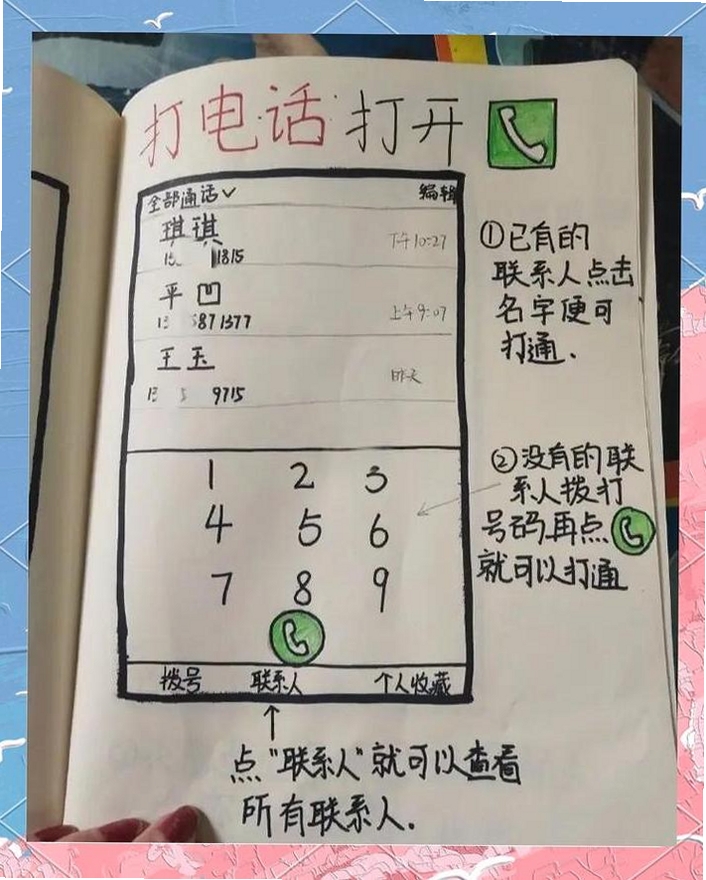 打电话 打开
全部通话 编辑
琪琪
下午10:27
1815
平凹
上午9:07
13 5871377
王玉
昨天
13 5 9715
1 2 3
4 5 6
7 8 9
拨号 联系人 个人收藏
①已有的
联系人点击
名字便可
打通.
②没有的联
系人拨打
号码再点
就可以打通
点"联系人"就可以查看
所有联系人.